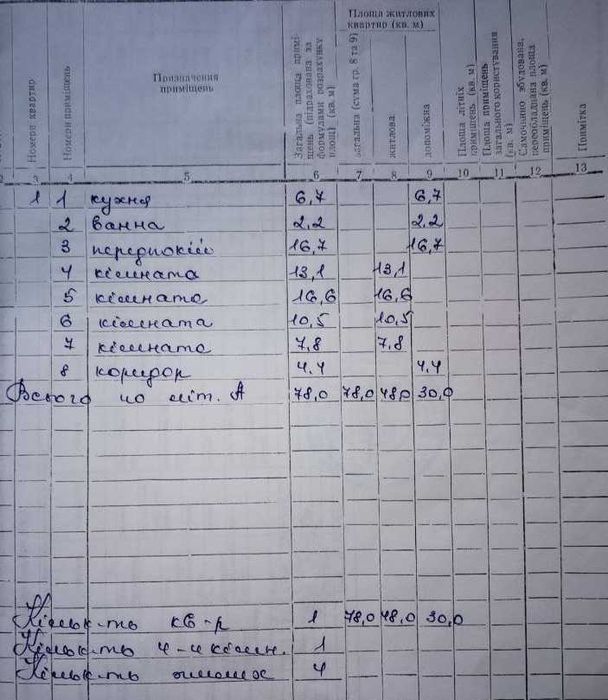 Номери квартир
Номери приміщень
Призначення приміщень
Загальна площа приміщень (підрахована за формулами розрахунку площ) (кв. м)
Площа житлових квартир (кв. м)
загальна (сума гр. 8 та 9)
житлова
допоміжна
Площа літніх приміщень (кв. м)
Площа приміщень загального користування (кв. м)
Самочинно збудована, переобладнана площа приміщень (кв. м)
Примітка
2 3 4 5 6 7 8 9 10 11 12 13
1 1 кухня 6,7 6,7
2 ванна 2,2 2,2
3 передпокій 16,7 16,7
4 кімната 13,1 13,1
5 кімната 16,6 16,6
6 кімната 10,5 10,5
7 кімната 7,8 7,8
8 коридор 4,4 4,4
Всього по літ. А 78,0 78,0 48,0 30,0
Кільк-ть кв-р 1 78,0 48,0 30,0
Кільк-ть 4-и кімн. 1
Кільк-ть 4